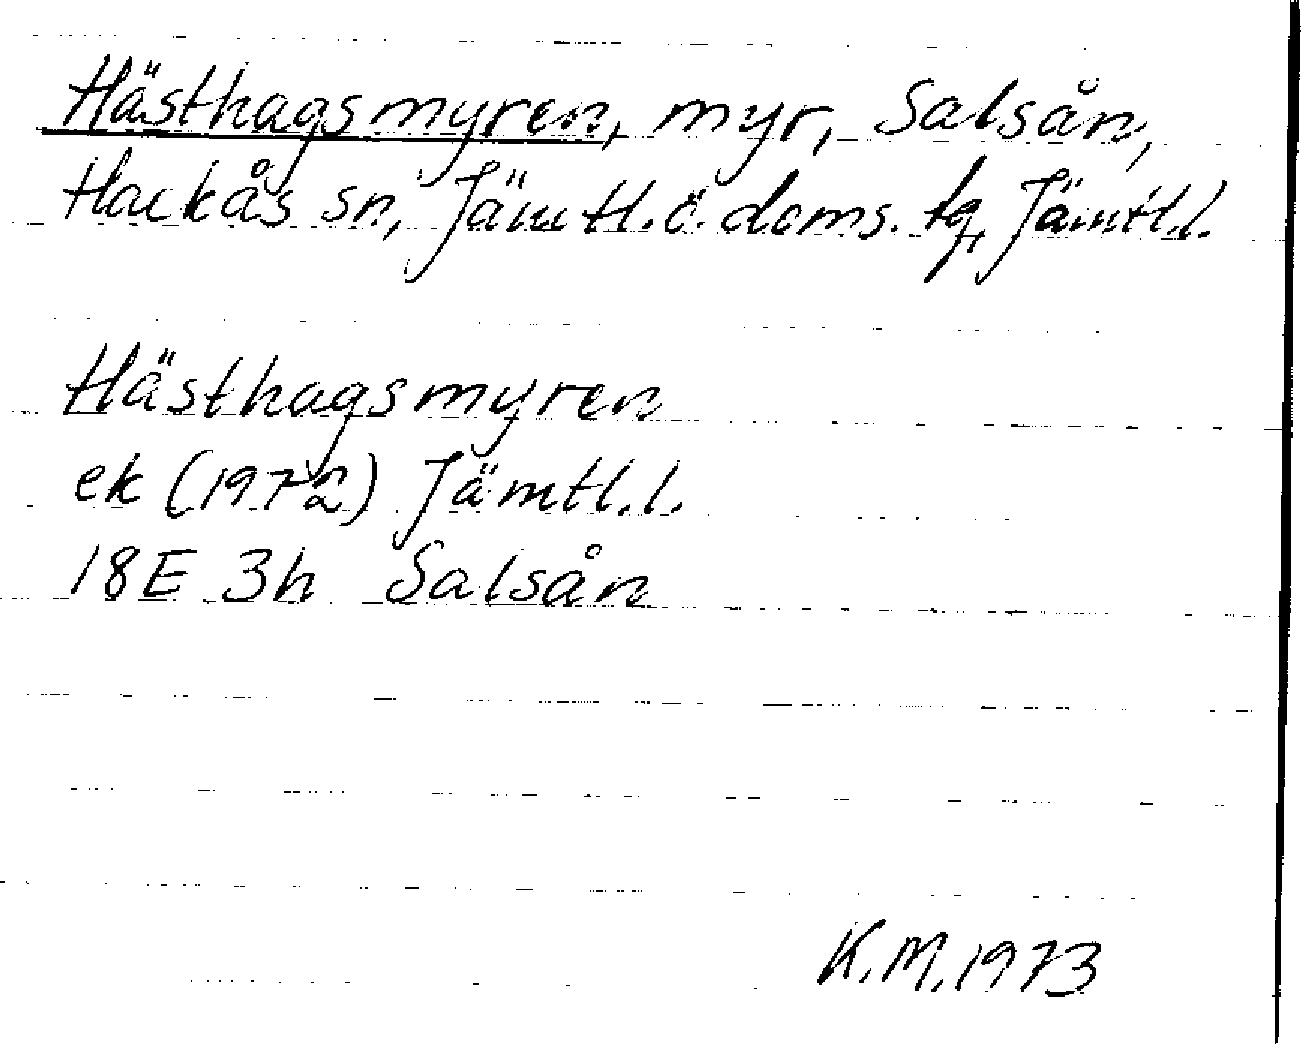 Hästhagsmyren, myr, Salsån,
Hackås sn, Jämtl. ö. doms. tg, Jämtl.l.
Hästhagsmyren
ek (1972) Jämtl.l.
18E 3h Salsån
K.M.1973